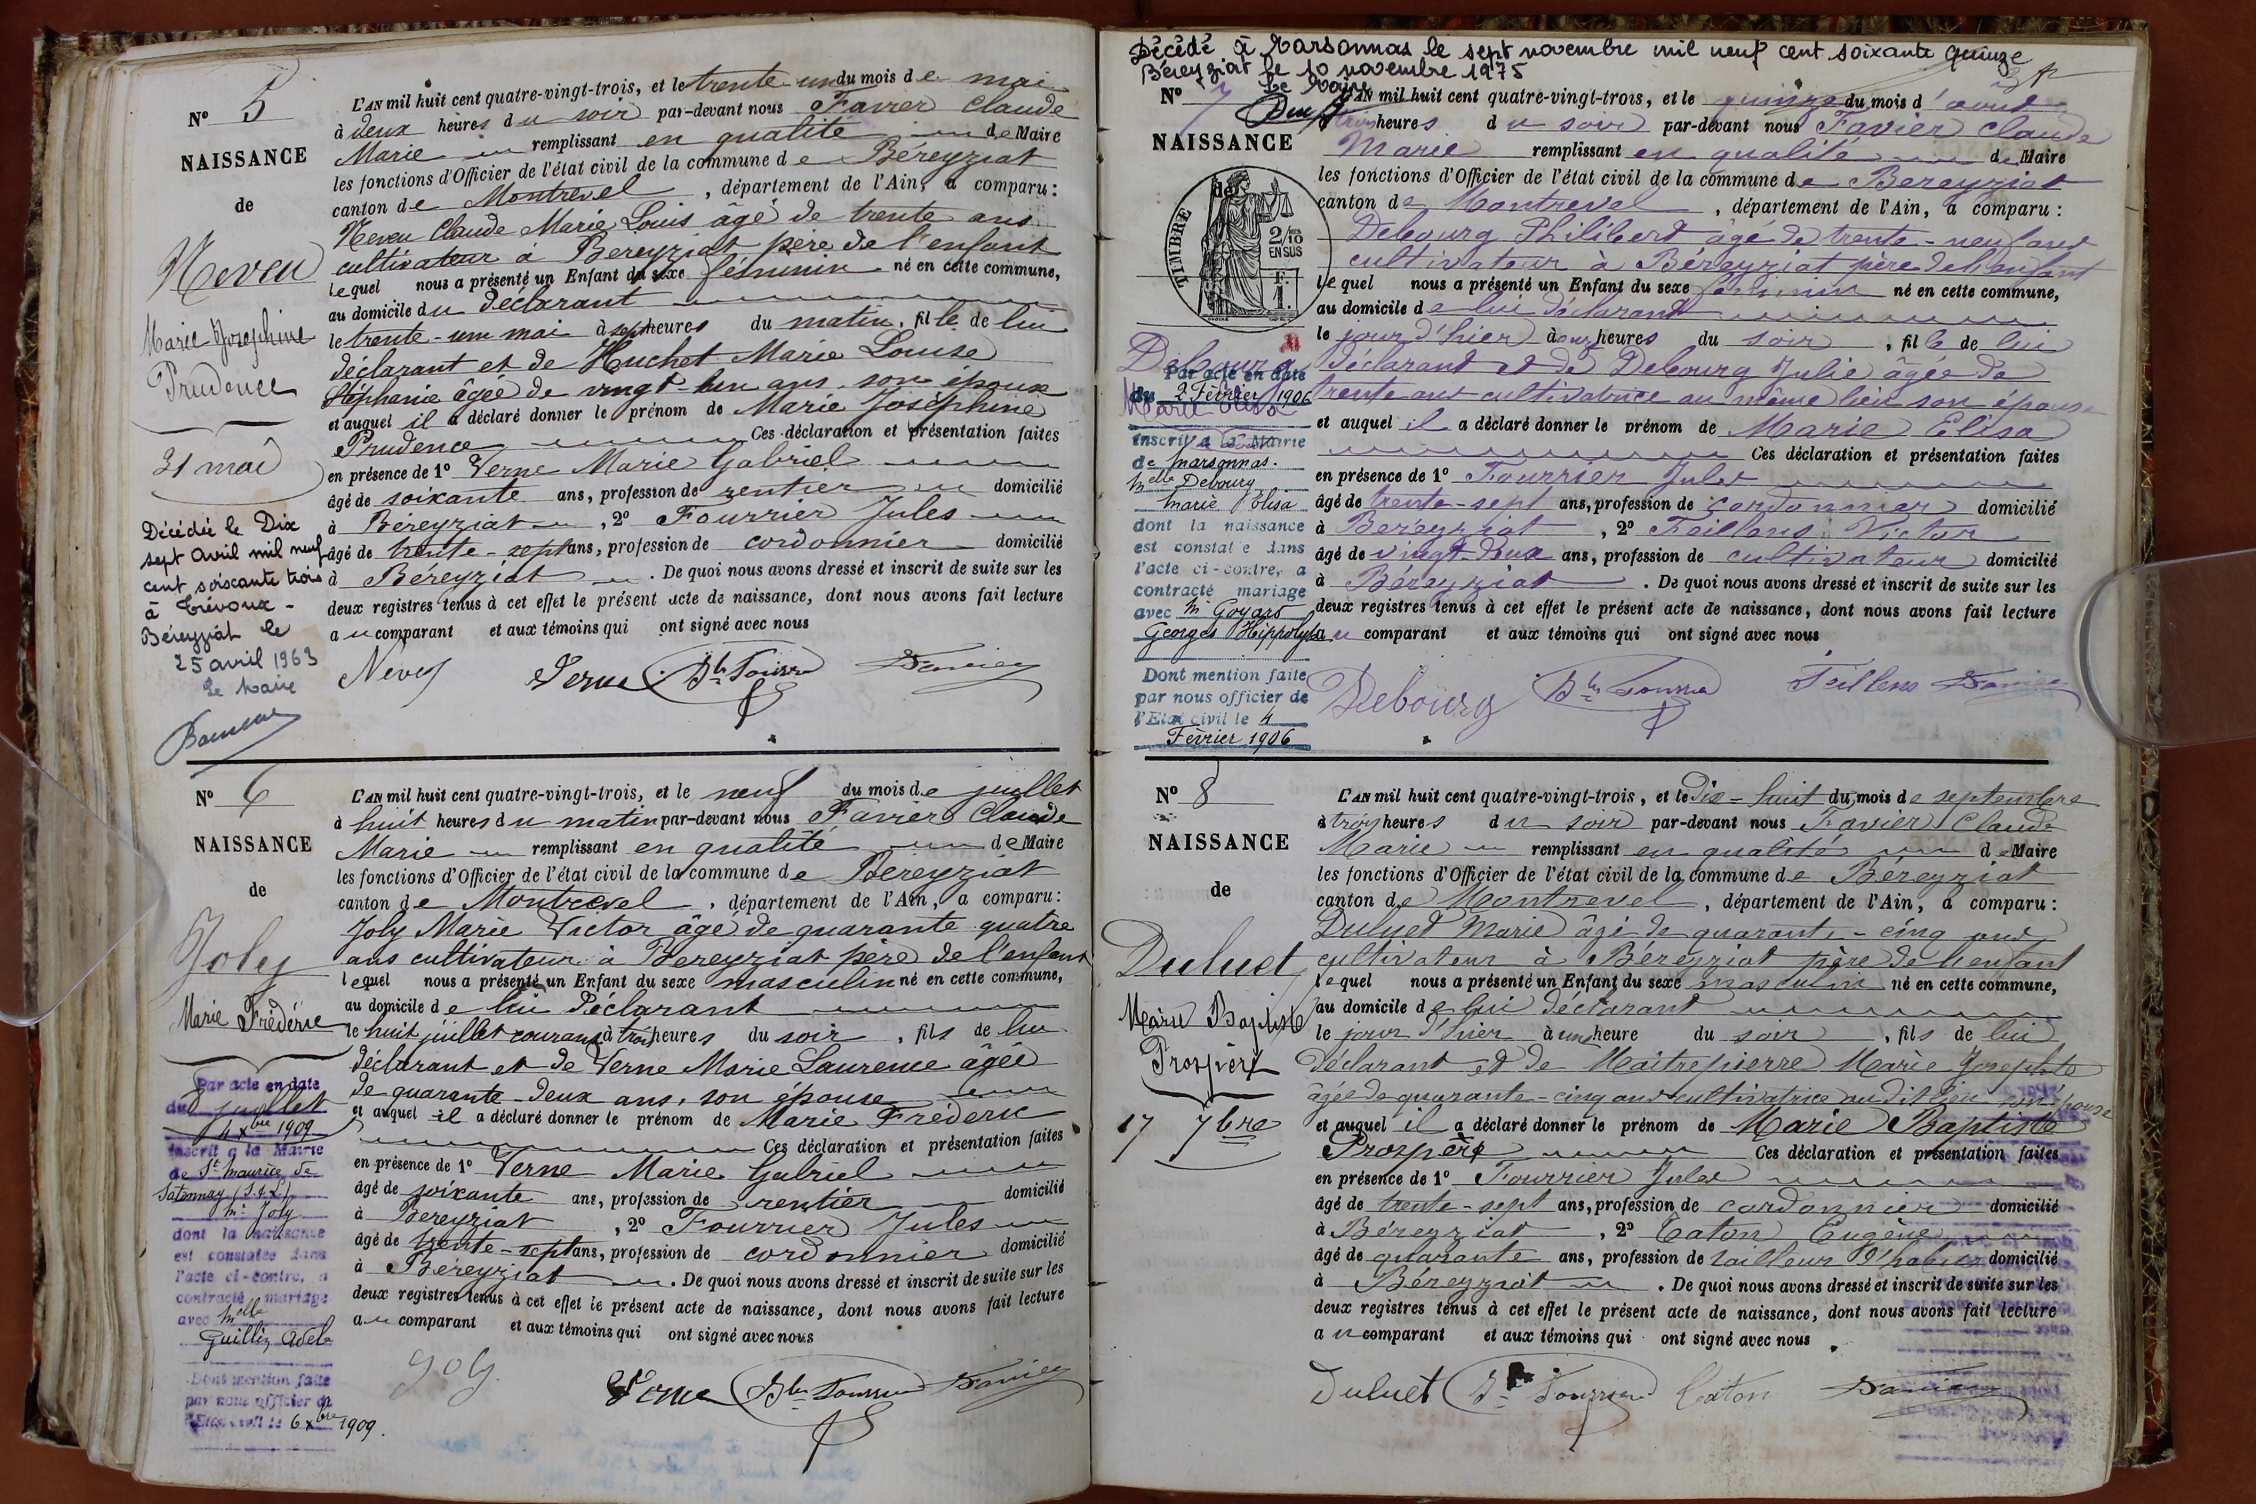 N° 5
NAISSANCE
de
Neveu
Marie Joséphine
Prudence
31 mai
Décédée le Dix
sept avril mil neuf
cent soixante trois
à Trévoux -
Béreyziat le
25 avril 1963
Le Maire
L'AN mil huit cent quatre-vingt-trois, et le trente un du mois de mai
à deux heures du soir par-devant nous Favier Claude
Marie remplissant en qualité de Maire
les fonctions d'Officier de l'état civil de la commune de Béreyziat
canton de Montrevel, département de l'Ain, a comparu :
Neveu Claude Marie Louis âgé de trente ans
cultivateur à Bereyziat père de l'enfant
lequel nous a présenté un Enfant du sexe féminin né en cette commune,
au domicile du déclarant
le trente-un mai à sept heures du matin, fille de lui
déclarant et de Huchet Marie Louise
Stéphanie âgée de vingt-un ans son épouse
et auquel il a déclaré donner le prénom de Marie Joséphine
Prudence Ces déclaration et présentation faites
en présence de 1° Verne Marie Gabriel
âgé de soixante ans, profession de rentier domicilié
à Béreyziat, 2° Fourrier Jules
âgé de trente-sept ans, profession de cordonnier domicilié
à Béreyziat. De quoi nous avons dressé et inscrit de suite sur les
deux registres tenus à cet effet le présent acte de naissance, dont nous avons fait lecture
au comparant et aux témoins qui ont signé avec nous
Neveu Verne Favier
N° 6
NAISSANCE
de
Joly
Marie Frédéric
8 juillet
Par acte en date
du 4 xbre 1909
inscrit à la Mairie
de St Maurice de
Satonnay (S.&L.)
Mr Joly
dont la naissance
est constatée dans
l'acte ci-contre, a
contracté mariage
avec Melle
Guillin Adèle
Dont mention faite
par nous officier de
l'Etat civil le 6 xbre 1909.
L'AN mil huit cent quatre-vingt-trois, et le neuf du mois de juillet
à huit heures du matin par-devant nous Favier Claude
Marie remplissant en qualité de Maire
les fonctions d'Officier de l'état civil de la commune de Béreyziat
canton de Montrevel, département de l'Ain, a comparu :
Joly Marie Victor âgé de quarante quatre
ans cultivateur à Bereyziat père de l'enfant
lequel nous a présenté un Enfant du sexe masculin né en cette commune,
au domicile de lui déclarant
le huit juillet courant à trois heures du soir, fils de lui
déclarant et de Verne Marie Laurence âgée
de quarante-deux ans, son épouse
et auquel il a déclaré donner le prénom de Marie Fréderic
Ces déclaration et présentation faites
en présence de 1° Verne Marie Gabriel
âgé de soixante ans, profession de rentier domicilié
à Bereyziat, 2° Fourrier Jules
âgé de trente-sept ans, profession de cordonnier domicilié
à Béreyziat. De quoi nous avons dressé et inscrit de suite sur les
deux registres tenus à cet effet le présent acte de naissance, dont nous avons fait lecture
au comparant et aux témoins qui ont signé avec nous
Joly Verne Favier
Décédé à Marsonnas le sept novembre mil neuf cent soixante quinze
Béreyziat le 10 novembre 1975
Le Maire
N° 7
NAISSANCE
de
TIMBRE
2/10
EN SUS
F.
1.
Debourg
Marie Elisa
Par acte en date
du 2 Février 1906
inscrit à la Mairie
de Marsonnas.
Melle Debourg
Marie Elisa
dont la naissance
est constatée dans
l'acte ci-contre, a
contracté mariage
avec Mr Goyard
Georges Hippolyte
Dont mention faite
par nous officier de
l'Etat civil le 4
Février 1906
L'AN mil huit cent quatre-vingt-trois, et le quinze du mois d'août
à trois heures du soir par-devant nous Favier Claude
Marie remplissant en qualité de Maire
les fonctions d'Officier de l'état civil de la commune de Bereyziat
canton de Montrevel, département de l'Ain, a comparu :
Debourg Philibert âgé de trente-neuf ans
cultivateur à Béreyziat père de l'enfant
lequel nous a présenté un Enfant du sexe féminin né en cette commune,
au domicile de lui déclarant
le jour d'hier à onze heures du soir, fille de lui
déclarant et de Debourg Julie âgée de
trente ans cultivatrice au même lieu son épouse
et auquel il a déclaré donner le prénom de Marie Elisa
Ces déclaration et présentation faites
en présence de 1° Fourrier Jules
âgé de trente-sept ans, profession de cordonnier domicilié
à Bereyziat, 2° Feillens Victor
âgé de vingt-deux ans, profession de cultivateur domicilié
à Béreyziat. De quoi nous avons dressé et inscrit de suite sur les
deux registres tenus à cet effet le présent acte de naissance, dont nous avons fait lecture
au comparant et aux témoins qui ont signé avec nous
Debourg Feillens Favier
N° 8
NAISSANCE
de
Duluet
Marie Baptiste
Prospère
17 7bre
L'AN mil huit cent quatre-vingt-trois, et le Dix-huit du mois de septembre
à trois heures du soir par-devant nous Favier Claude
Marie remplissant en qualité de Maire
les fonctions d'Officier de l'état civil de la commune de Béreyziat
canton de Montrevel, département de l'Ain, a comparu :
Duluet Marie âgé de quarante-cinq ans
cultivateur à Béreyziat père de l'enfant
lequel nous a présenté un Enfant du sexe masculin né en cette commune,
au domicile de lui déclarant
le jour d'hier à une heure du soir, fils de lui
déclarant et de Maitrepierre Marie Josephte
âgée de quarante-cinq ans cultivatrice audit lieu son épouse
et auquel il a déclaré donner le prénom de Marie Baptiste
Prospère Ces déclaration et présentation faites
en présence de 1° Fourrier Jules
âgé de trente-sept ans, profession de cordonnier domicilié
à Béreyziat, 2° Caton Eugène
âgé de quarante ans, profession de tailleur d'habits domicilié
à Béreyziat. De quoi nous avons dressé et inscrit de suite sur les
deux registres tenus à cet effet le présent acte de naissance, dont nous avons fait lecture
au comparant et aux témoins qui ont signé avec nous
Duluet Caton Favier